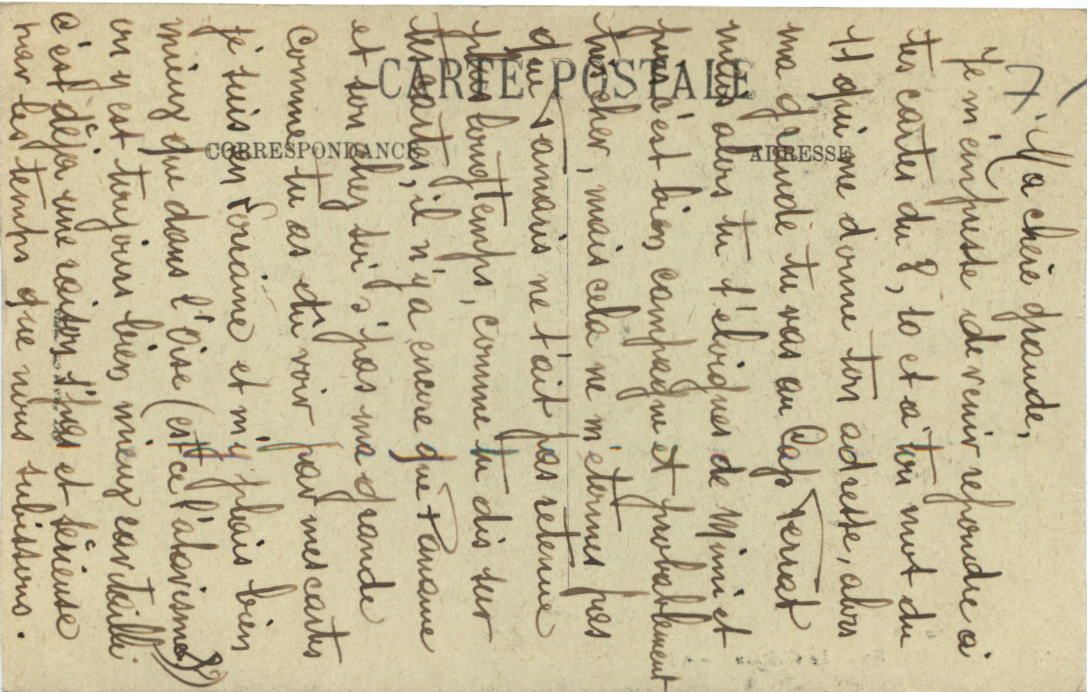 CARTE POSTALE
CORRESPONDANCE
ADRESSE
7.
Ma chère grande,
Je m'empresse de venir répondre à
tes cartes du 8, 10 et à ton mot du
11 qui me donne ton adresse, alors
ma grande tu vas au Cap Ferrat
mais alors tu t'éloignes de Mimi et
puis c'est bien campagne et probablement
très cher, mais cela ne m'étonnes pas
que Panam ne t'ait pas retenue
plus longtemps, comme tu dis sur
tes cartes, il n'y a encore que Paname
et son chez soi, pas ma grande
Comme tu as dû voir par mes cartes
je suis en Lorraine et m'y plais bien
mieux que dans l'Oise (est ce l'atavisme ??)
on y est toujours bien, mieux ravitaillé
c'est déjà une raison très et sérieuse
par les temps que nous subissons.